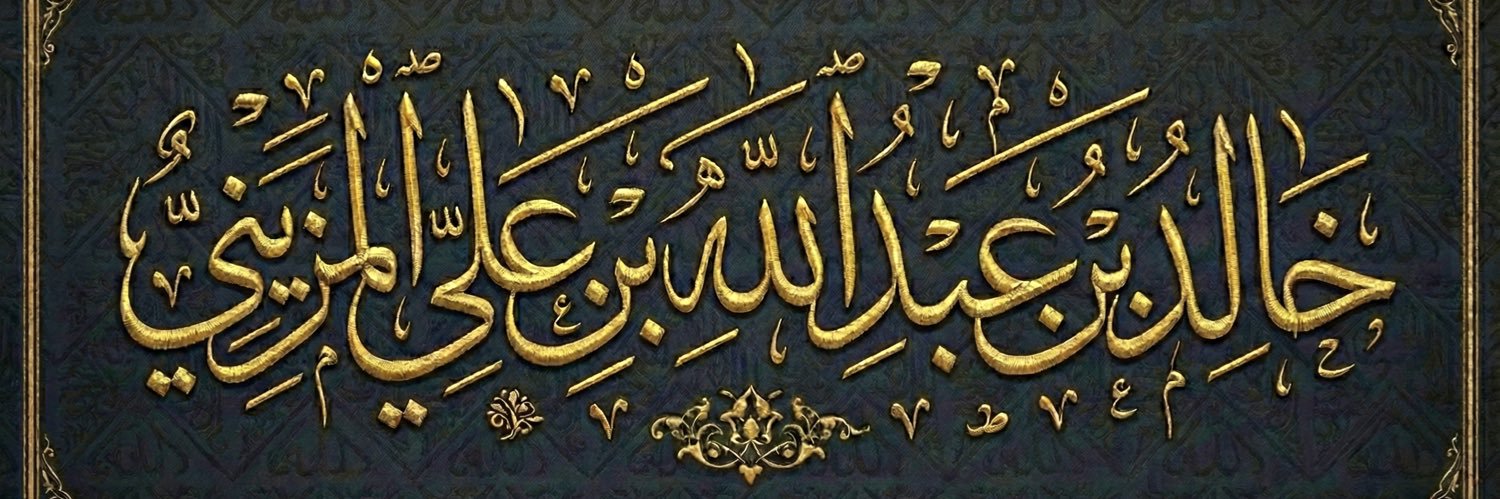 خَالِدُ بْنُ عَبْدِ اللَّهِ بْنِ عَلِيٍّ الْمُزَيْنِيُّ